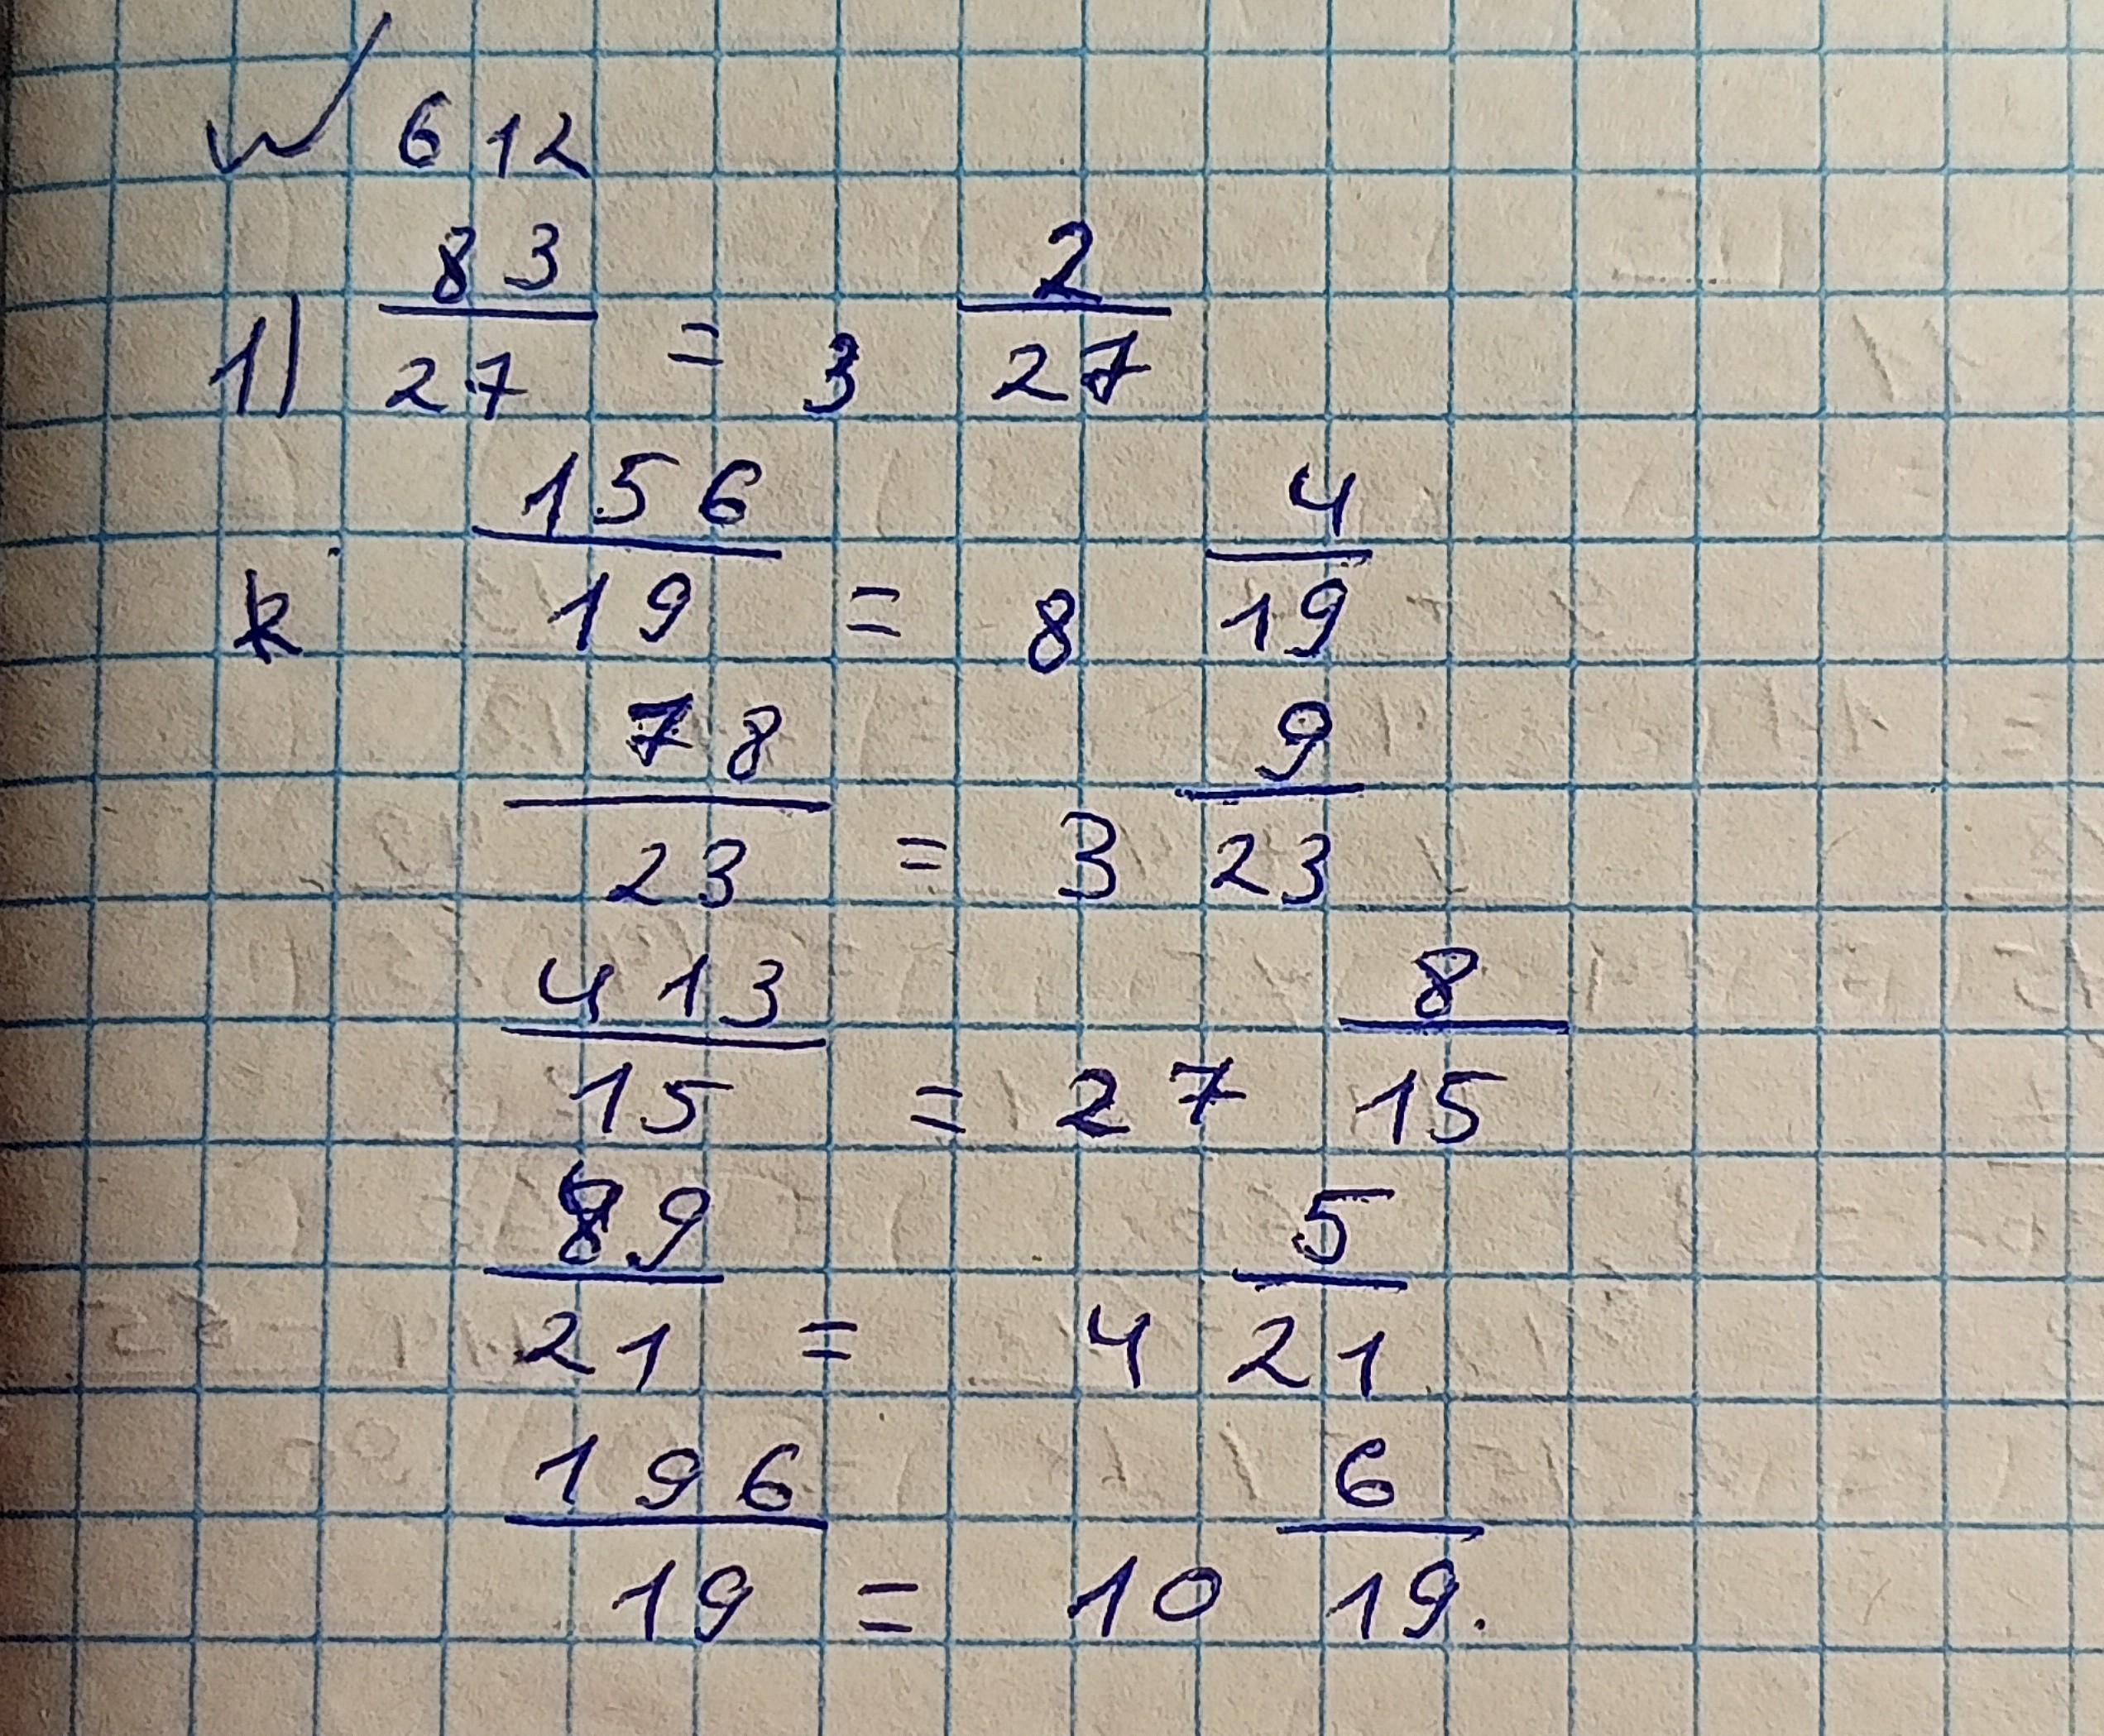 √ 612
1) 83/27 = 3 2/27
156/19 = 8 4/19
78/23 = 3 9/23
413/15 = 27 8/15
89/21 = 4 5/21
196/19 = 10 6/19.